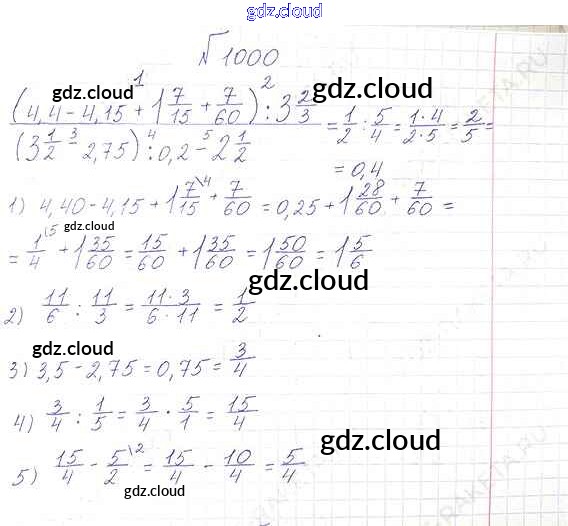 gdz.cloud
√ 1000
gdz.cloud gdz.cloud
(4,4 - 4,15 + 1 7/15 + 7/60) : 3 2/3 / (3 1/2 - 2,75) : 0,2 - 2 1/2 = 1/2 : 5/4 = 1·4/2·5 = 2/5 =
1 2 3 4 5
= 0,4
gdz.cloud
1) 4,40 - 4,15 + 1 7\4/15 + 7/60 = 0,25 + 1 28/60 + 7/60 =
gdz.cloud
= 1\15/4 + 1 35/60 = 15/60 + 1 35/60 = 1 50/60 = 1 5/6
gdz.cloud
2) 11/6 : 11/3 = 11·3/6·11 = 1/2
gdz.cloud
3) 3,5 - 2,75 = 0,75 = 3/4
4) 3/4 : 1/5 = 3/4 · 5/1 = 15/4
gdz.cloud
5) 15/4 - 5\2/2 = 15/4 - 10/4 = 5/4
gdz.cloud